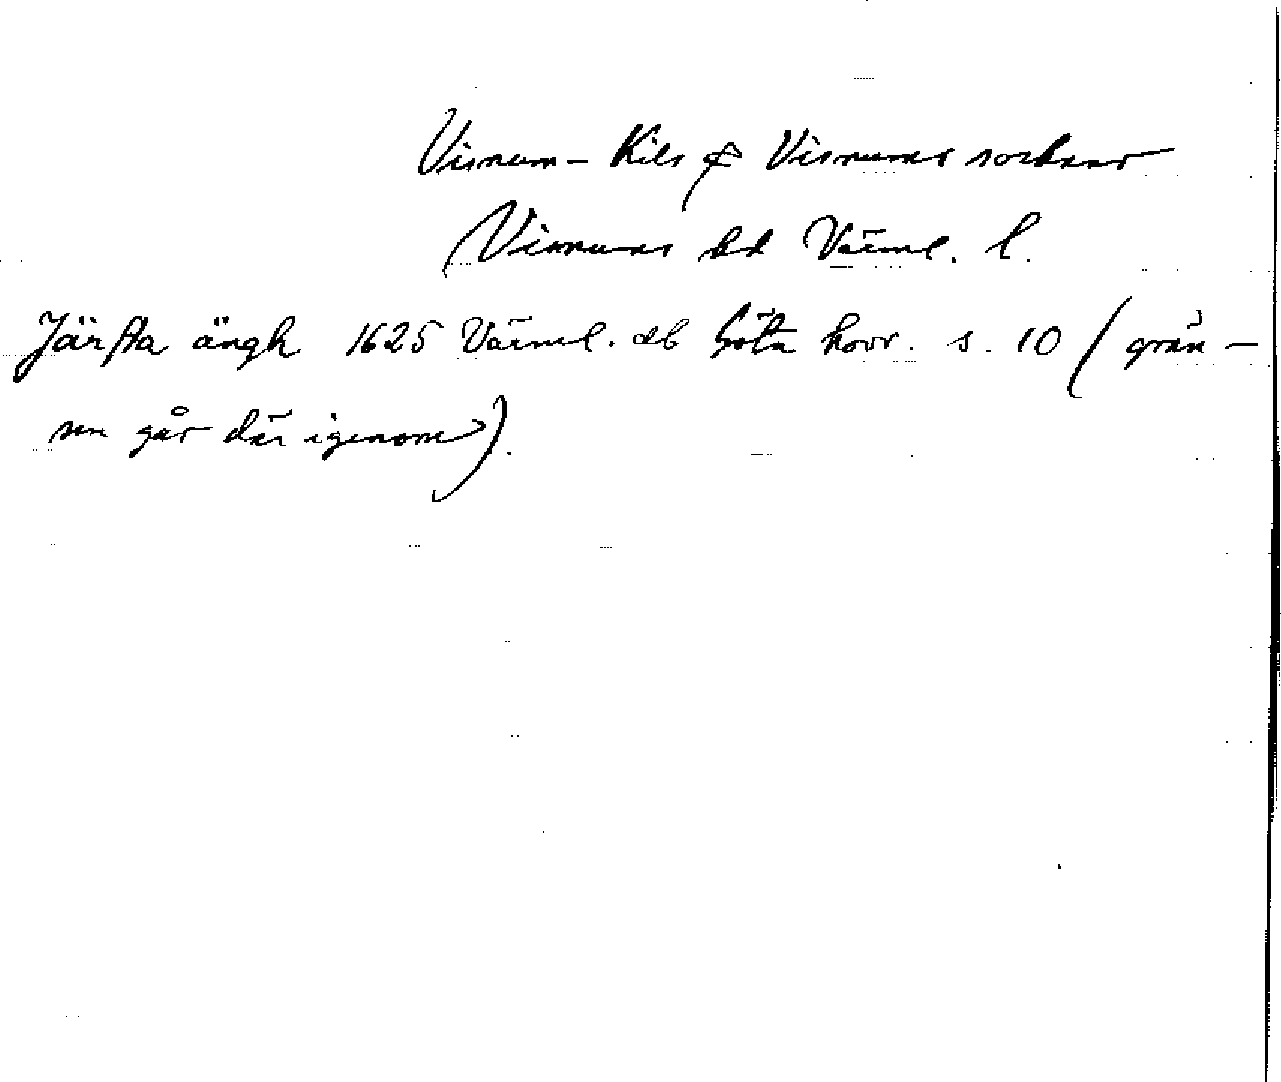 Visnum-Kils & Visnums socknar
Visnums hd Värml. l.
Järsta ängh 1625 Värml. db Göta hovr. s. 10 (grän-
sen går där igenom).